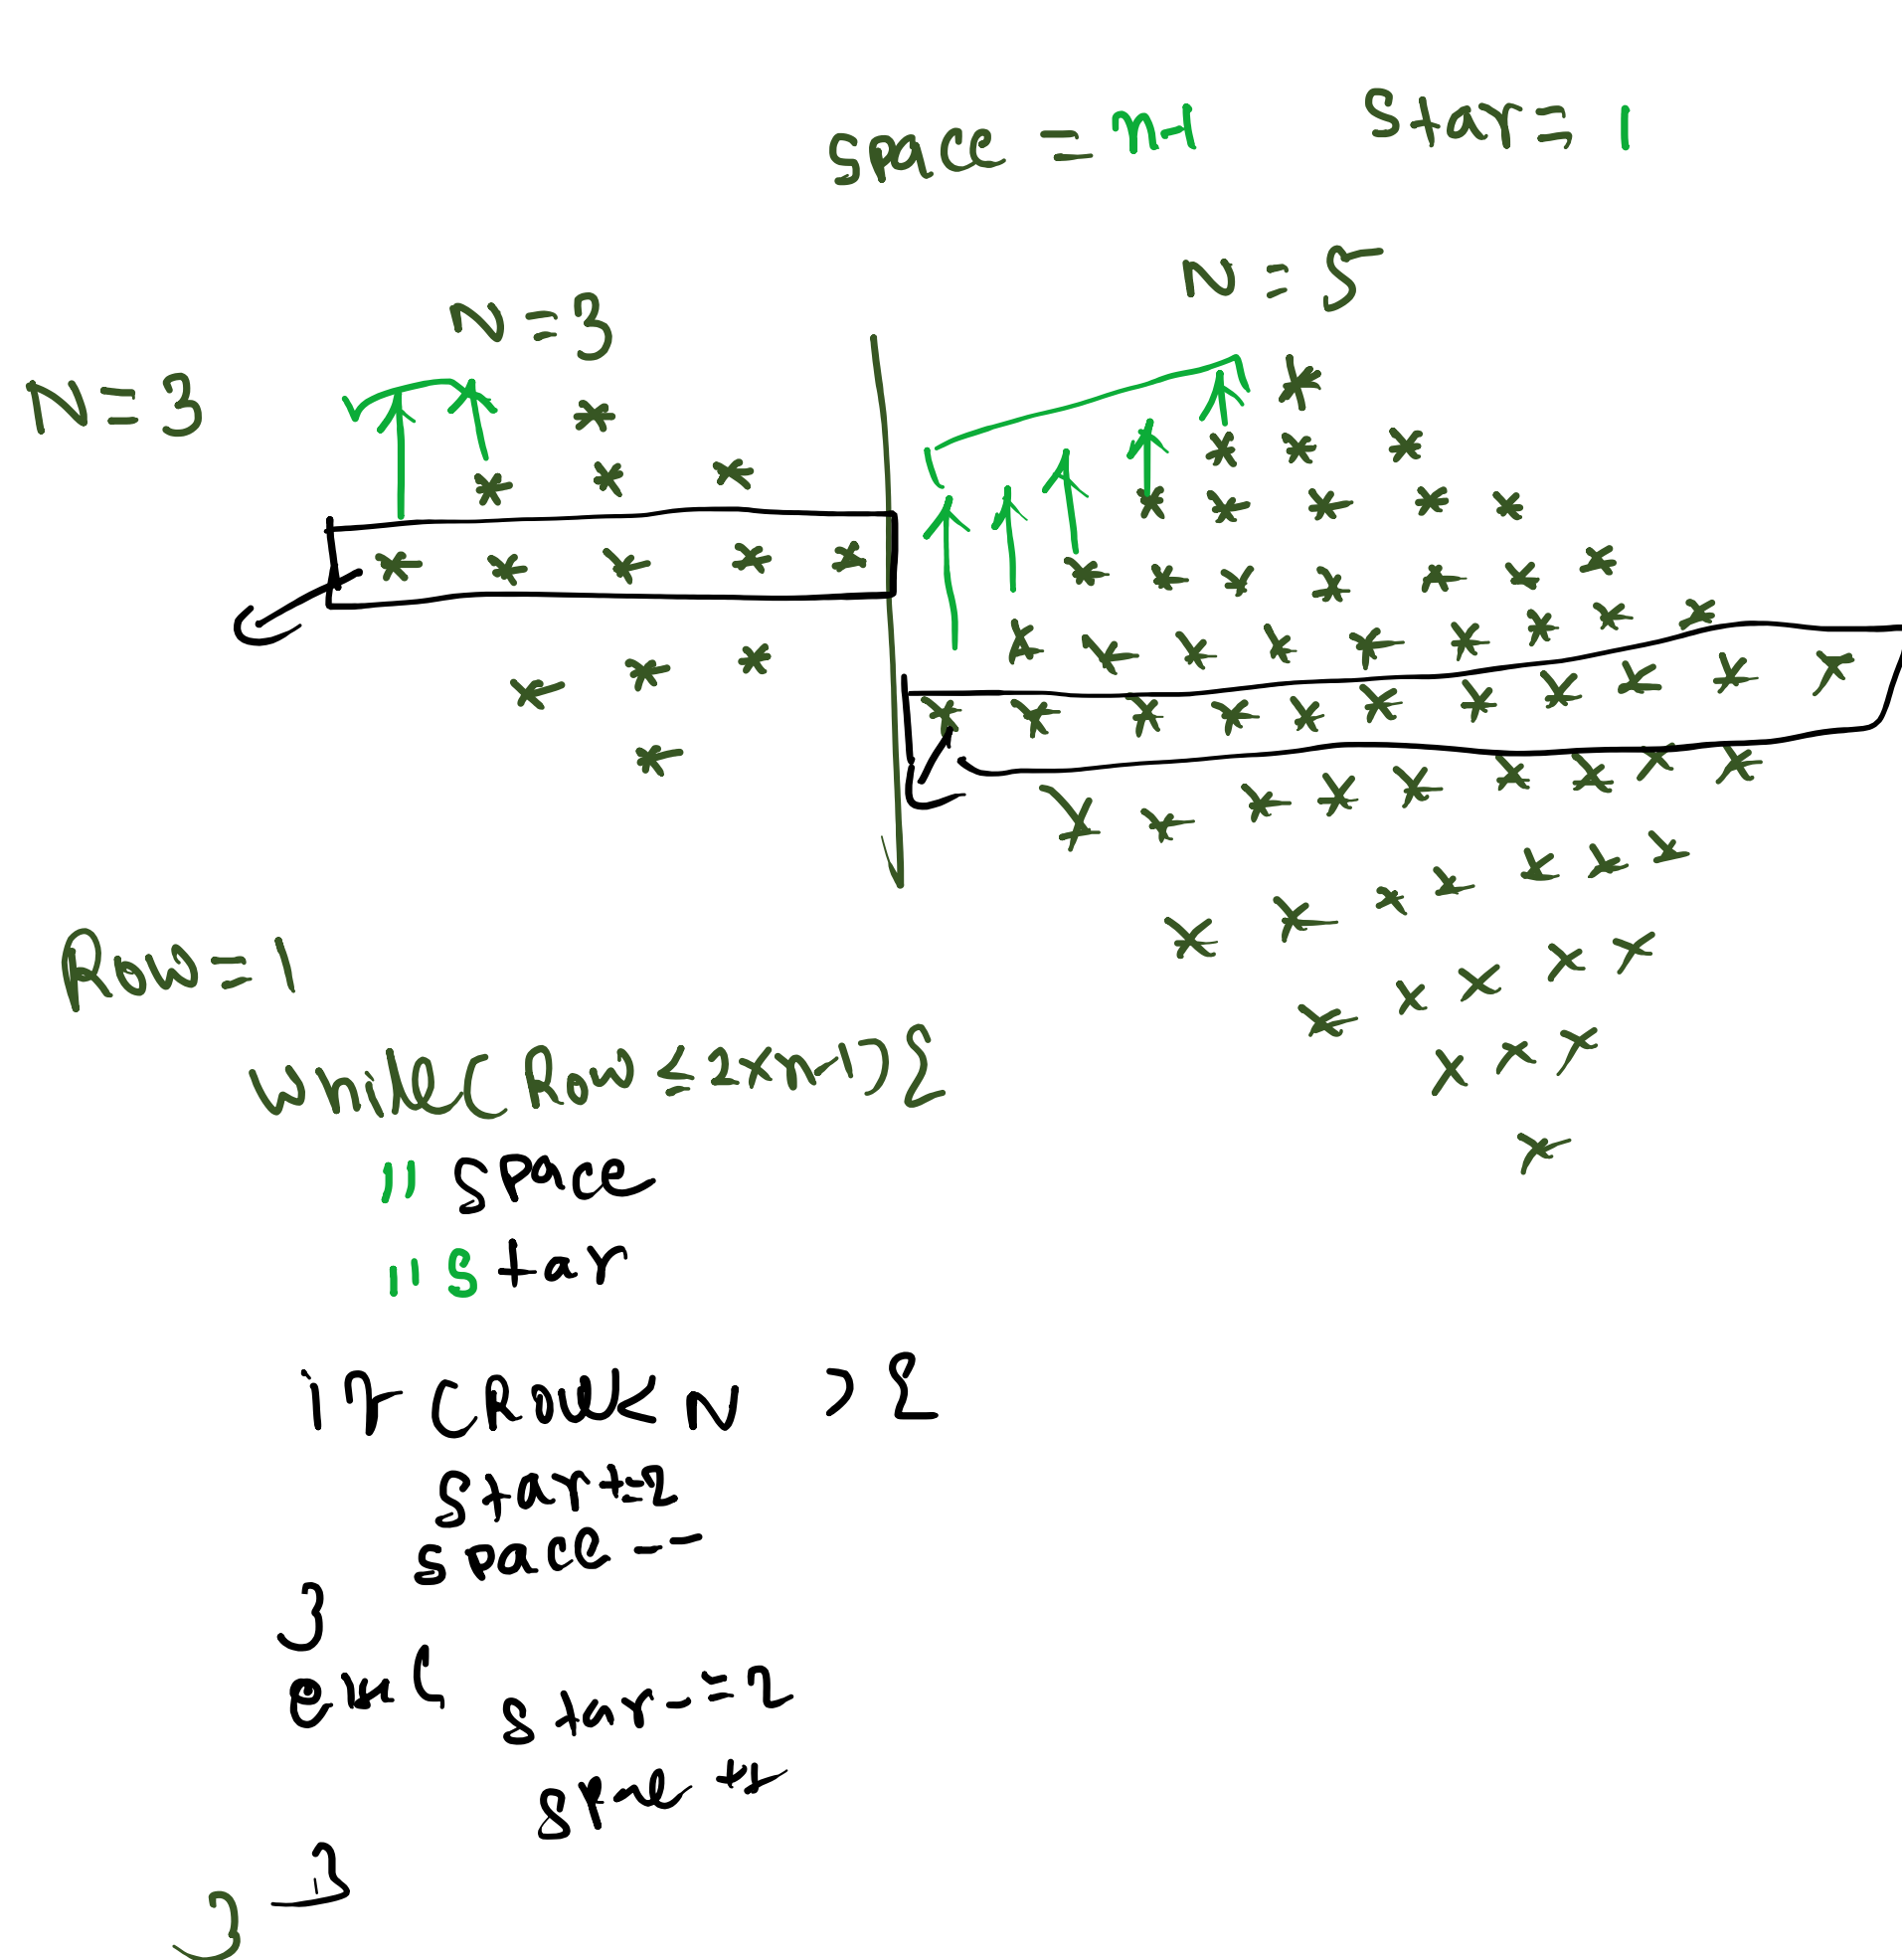 space = n-1 Star = 1
N = 5
N = 3
N = 3
*
* * *
* * * * *
* * *
*
*
* * *
* * * * *
* * * * * * *
* * * * * * * * *
* * * * * * * * * * *
* * * * * * * * *
* * * * * * *
* * * * *
* * *
*
Row = 1
while( Row ≤ 2*n-1){
" space
" star
if (Row < N ){
star+=2
space --
}
star-=2
++
}
}